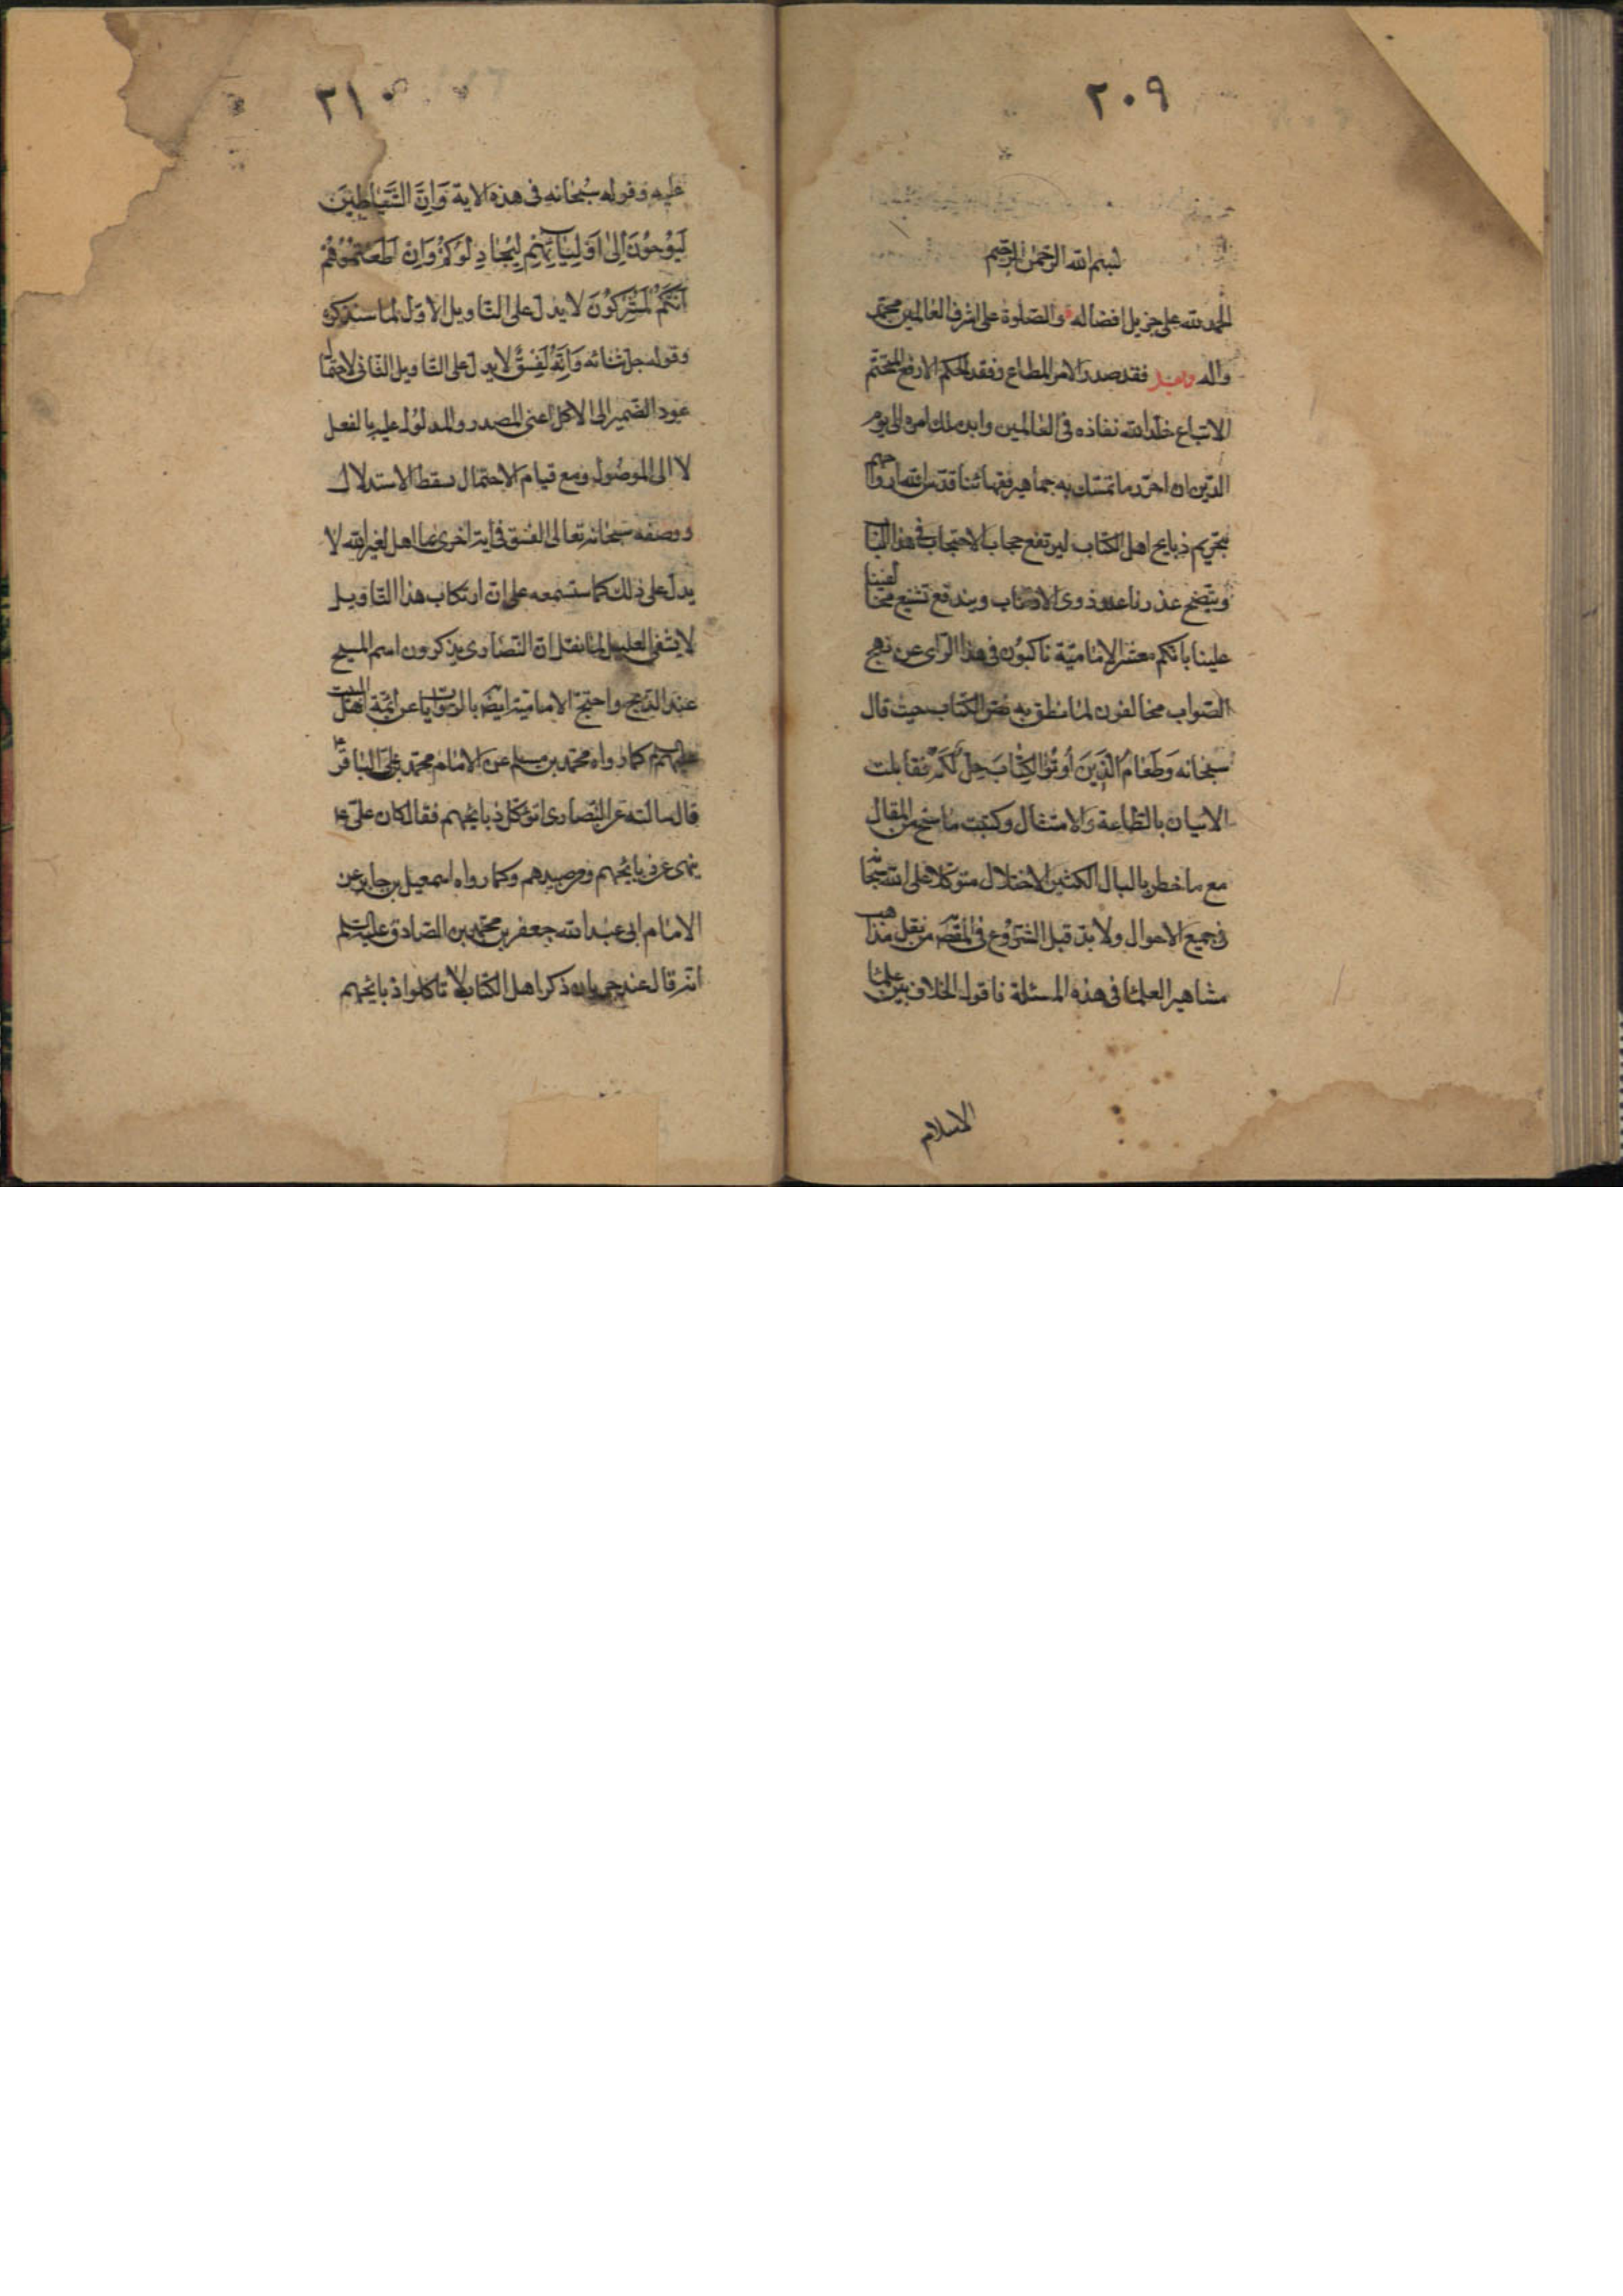 ٢٠٩
بسم الله الرحمن الرحيم
الحمد لله على جزيل افضاله والصلوة على اشرف العالمين محمد
واله وبعد فقد صدر الامر المطاع ونفذ الحكم الارفع المتحتم
الاتباع خلد الله نفاذه فى العالمين وابد ملك امره الى يوم
الدين ان احرر ما تمسك به جماهير فقهائنا قدس الله ارواحهم
بتحريم ذبايح اهل الكتاب ليرتفع حجاب الاحتجاب فى هذا الباب
ويتضح عذرنا عند ذوى الالباب ويندفع تشنيع مخالفينا
علينا بانكم معشر الإمامية ناكبون فى هذا الراى عن نهج
الصواب مخالفون لما نطق به نص الكتاب حيث قال
سبحانه وَطَعَامُ الَّذِينَ أُوتُوا الْكِتَابَ حِلٌّ لَكُمْ فقابلت
الاتيان بالطاعة والامتثال وكتبت ما سنح من المقال
مع ما خطر بالبال الكثير الاختلال متوكلا على الله سبحانه
فى جميع الاحوال ولا بد قبل الشروع فى المقصد من نقل مذاهب
مشاهير العلما فى هذه المسئلة فاقول الخلاف بين علما
الاسلام
٢١٠
عليه وقوله سبحانه فى هذه الاية وَاِنَّ الشَّيَاطِينَ
لَيُوحُونَ اِلىٰ اَوْلِيَائِهِمْ لِيُجَادِلُوكُمْ وَاِنْ اَطَعْتُمُوهُمْ
اِنَّكُمْ لَمُشْرِكُونَ لا يدل على التاويل الاول لما سنذكره
وقوله جل شانه وَاِنَّهُ لَفِسْقٌ لا يدل على التاويل الثانى لاحتمال
عود الضمير الى الاكل اعنى المصدر والمدلول عليه بالفعل
لا الى الموصول ومع قيام الاحتمال سقط الاستدلال
ووصفه سبحانه وتعالى الفسق فى اية اخرى بما اهل لغير الله لا
يدل على ذلك كما ستسمعه على ان ارتكاب هذا التاويل
لا يشفى العليل لما نقل ان النصارى يذكرون اسم المسيح
عند الذبح واحتج الامامية ايضا بالروايات عن ائمة اهل البيت
عليهم كما رواه محمد بن مسلم عن الامام محمد بن على الباقر ع
قال سالته عن النصارى اتؤكل ذبايحهم فقال كان على ع
ينهى عن ذبايحهم وعن صيدهم وكما رواه اسمعيل بن جابر عن
الامام ابى عبد الله جعفر بن محمد بن الصادق عليه السلم
انه قال عند جريان ذكر اهل الكتاب لا تاكلوا ذبايحهم